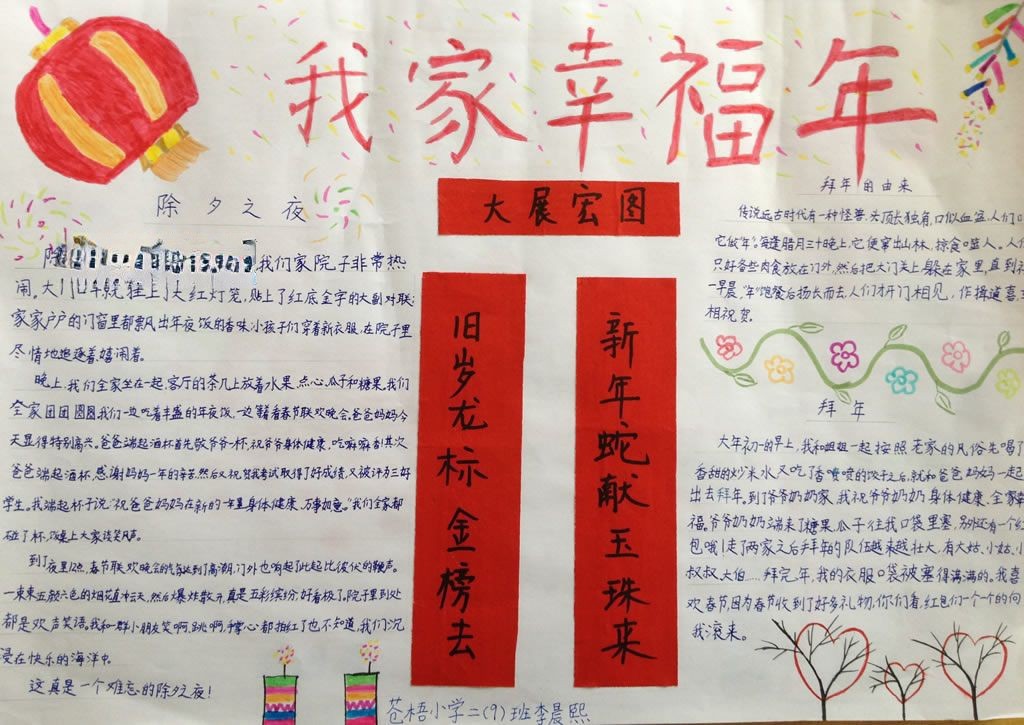 我家幸福年
除夕之夜
我们家院子非常热
闹。大门早就挂上了大红灯笼,贴上了红底金字的大副对联;
家家户户的门窗里都飘出年夜饭的香味,小孩子们穿着新衣服,在院子里
尽情地追逐着,嬉闹着。
晚上,我们全家坐在一起,客厅的茶几上放着水果、点心、瓜子和糖果,我们
全家团团圆圆我们一边吃着丰盛的年夜饭,一边看着春节联欢晚会,爸爸妈妈今
天显得特别高兴。爸爸端起酒杯首先敬爷爷一杯,祝爷爷身体健康,吃嘛嘛香!其次
爸爸端起酒杯,感谢妈妈一年的辛苦,然后又祝贺我考试取得了好成绩,又被评为三好
学生。我端起杯子说:“祝爸爸妈妈在新的一年里身体健康,万事如意。”我们全家都
碰了杯,饭桌上大家谈笑风声。
到了夜里12点,春节联欢晚会的气氛达到了高潮,门外也响起了此起比彼伏的鞭声。
一束束五颜六色的烟花直冲云天,然后爆炸散开,真是五彩缤纷,好看极了。院子里到处
都是欢声笑语。我和一群小朋友笑啊,跳啊,手掌心都拍红了也不知道,我们沉
浸在快乐的海洋中。
这真是一个难忘的除夕之夜!
大展宏图
旧岁龙标金榜去
新年蛇献玉珠来
拜年的由来
传说远古时代有一种怪兽,头顶长独角,口似血盆,人们
它做“年”。每逢腊月三十晚上,它便窜出山林,掠食噬人。人
只好备些肉食放在门外,然后把大门关上,躲在家里,直到
一早晨,“年”饱餐后扬长而去,人们才开门相见,作揖道喜
相祝贺。
拜年
大年初一的早上,我和姐姐一起按照老家的风俗先喝了
香甜的炒米水又吃了香喷喷的饺子之后,就和爸爸妈妈一起
出去拜年。到了爷爷奶奶家,我祝爷爷奶奶身体健康,全家幸
福。爷爷奶奶端来了糖果、瓜子往我口袋里塞,别还有一个红
包哦!走了两家之后拜年的队伍越来越壮大,有大姑、小姑、小
叔叔、大伯……拜完年,我的衣服口袋被塞得满满的。我喜
欢春节,因为春节收到了好多礼物,你们看,红包们一个个的向
我滚来。
苍梧小学二(9)班李晨熙